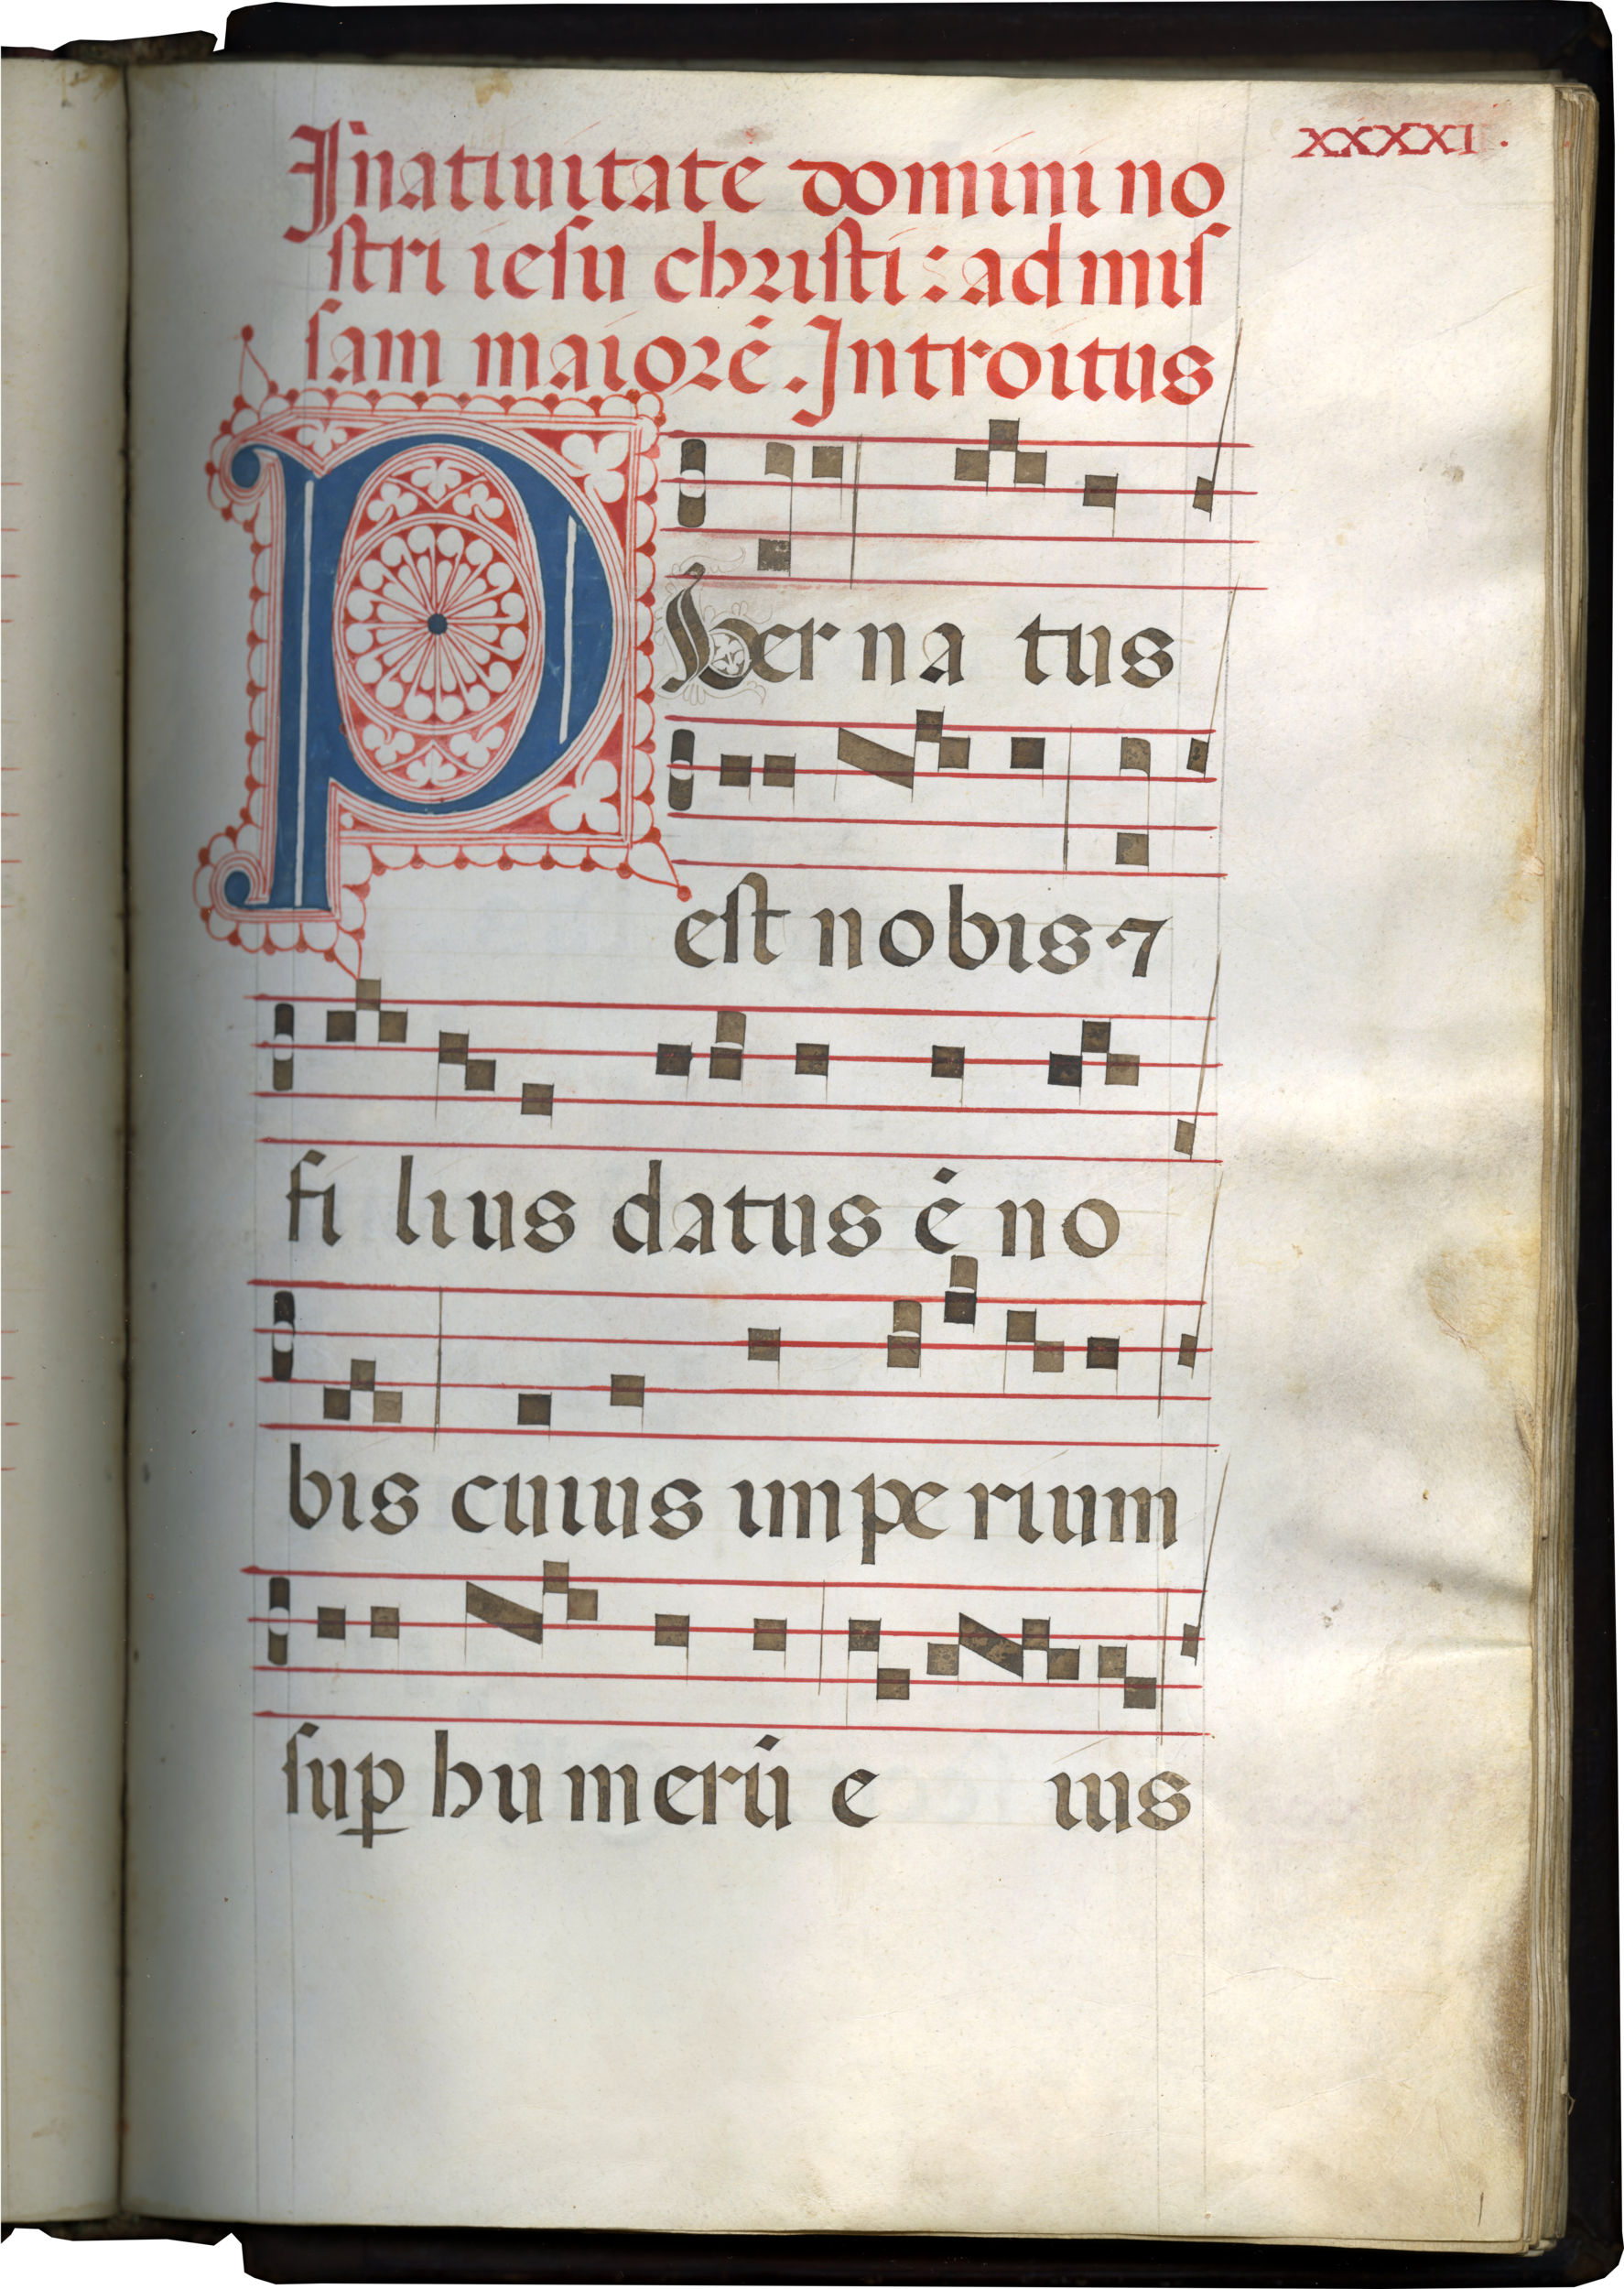 XXXXXI.
Jnatiuitate domini no
stri iesu christi: ad mis
sam maiorē. Introitus
Puer na tus
est nobis ⁊
fi lius datus ē no
bis cuius impe rium
suꝑ humerū e ius